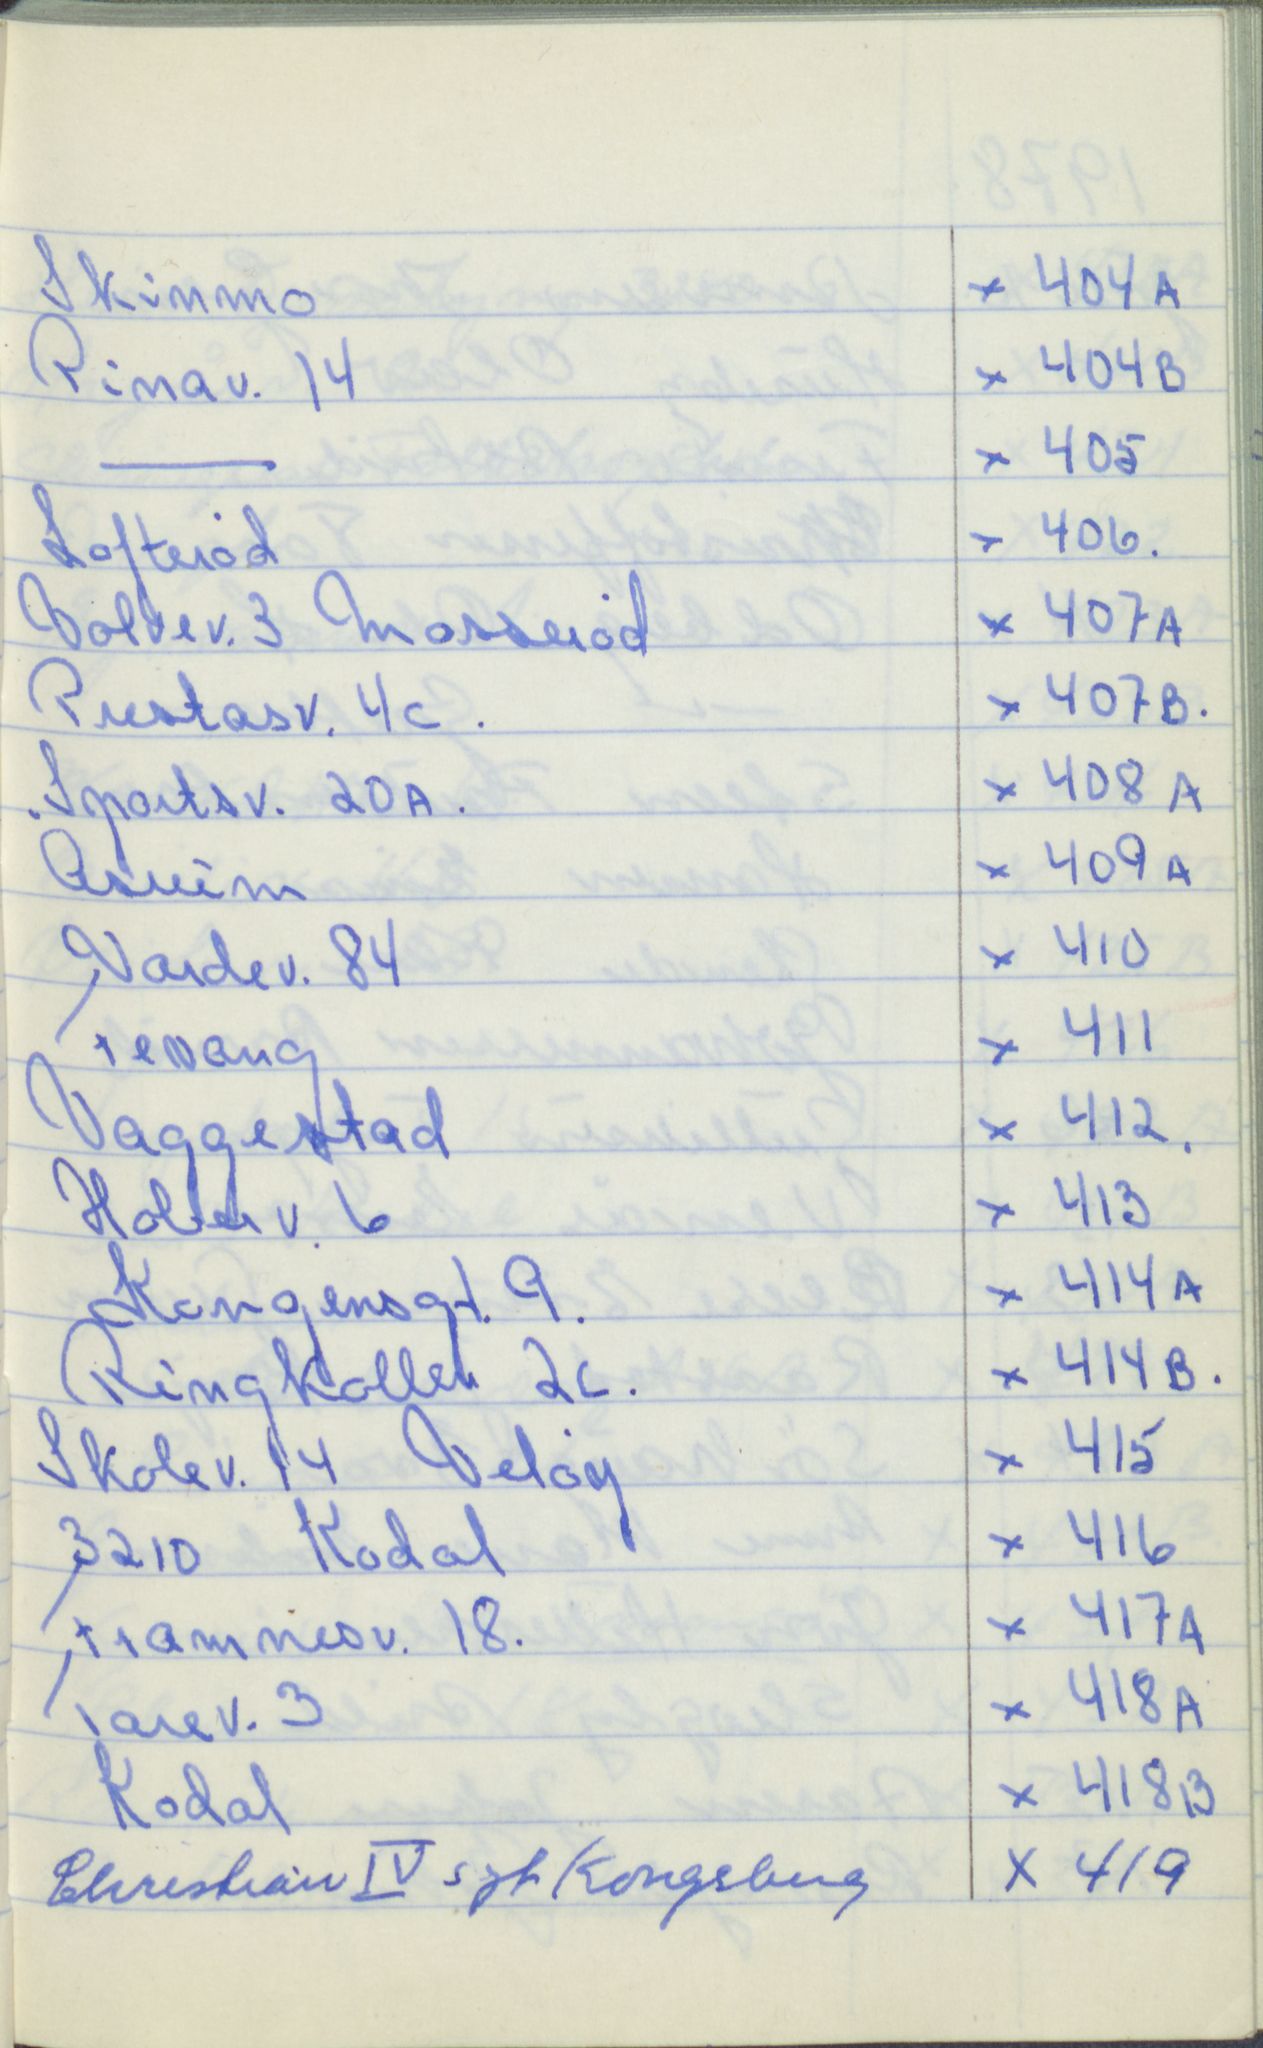 Skinmo x 404A
Rinav. 14 x 404B
— x 405
Lofterød x 406.
Volvev. 3 Mosserød x 407A
Prestasv. 4c. x 407B.
Sportsv. 20A. x 408A
Åsrum x 409A
Vardev. 84 x 410
Tevang x 411
Vaggestad x 412.
v. 6 x 413
Kongensgt. 9. x 414A
Ringkollen 2c. x 414B.
Skolev. 14 Veløy x 415
3210 Kodal x 416
Framnesv. 18. x 417A
Tarev. 3 x 418A
Kodal x 418B
Christian IV s gt Kongsberg x 419